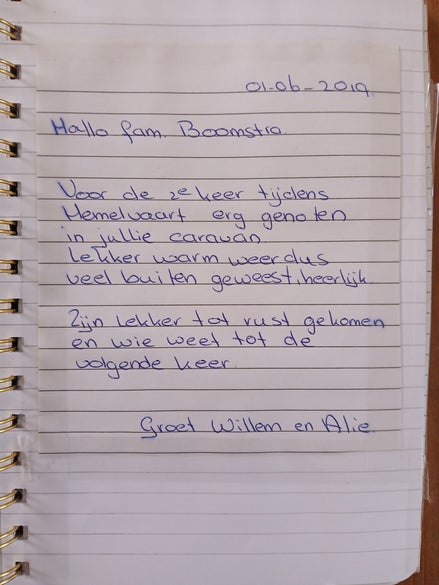 01-06-2019
Hallo fam. Boomstra.
Voor de 2e keer tijdens
Hemelvaart erg genoten
in jullie caravan.
Lekker warm weer dus
veel buiten geweest, heerlijk.
Zijn lekker tot rust gekomen
en wie weet tot de
volgende keer.
Groet Willem en Alie.